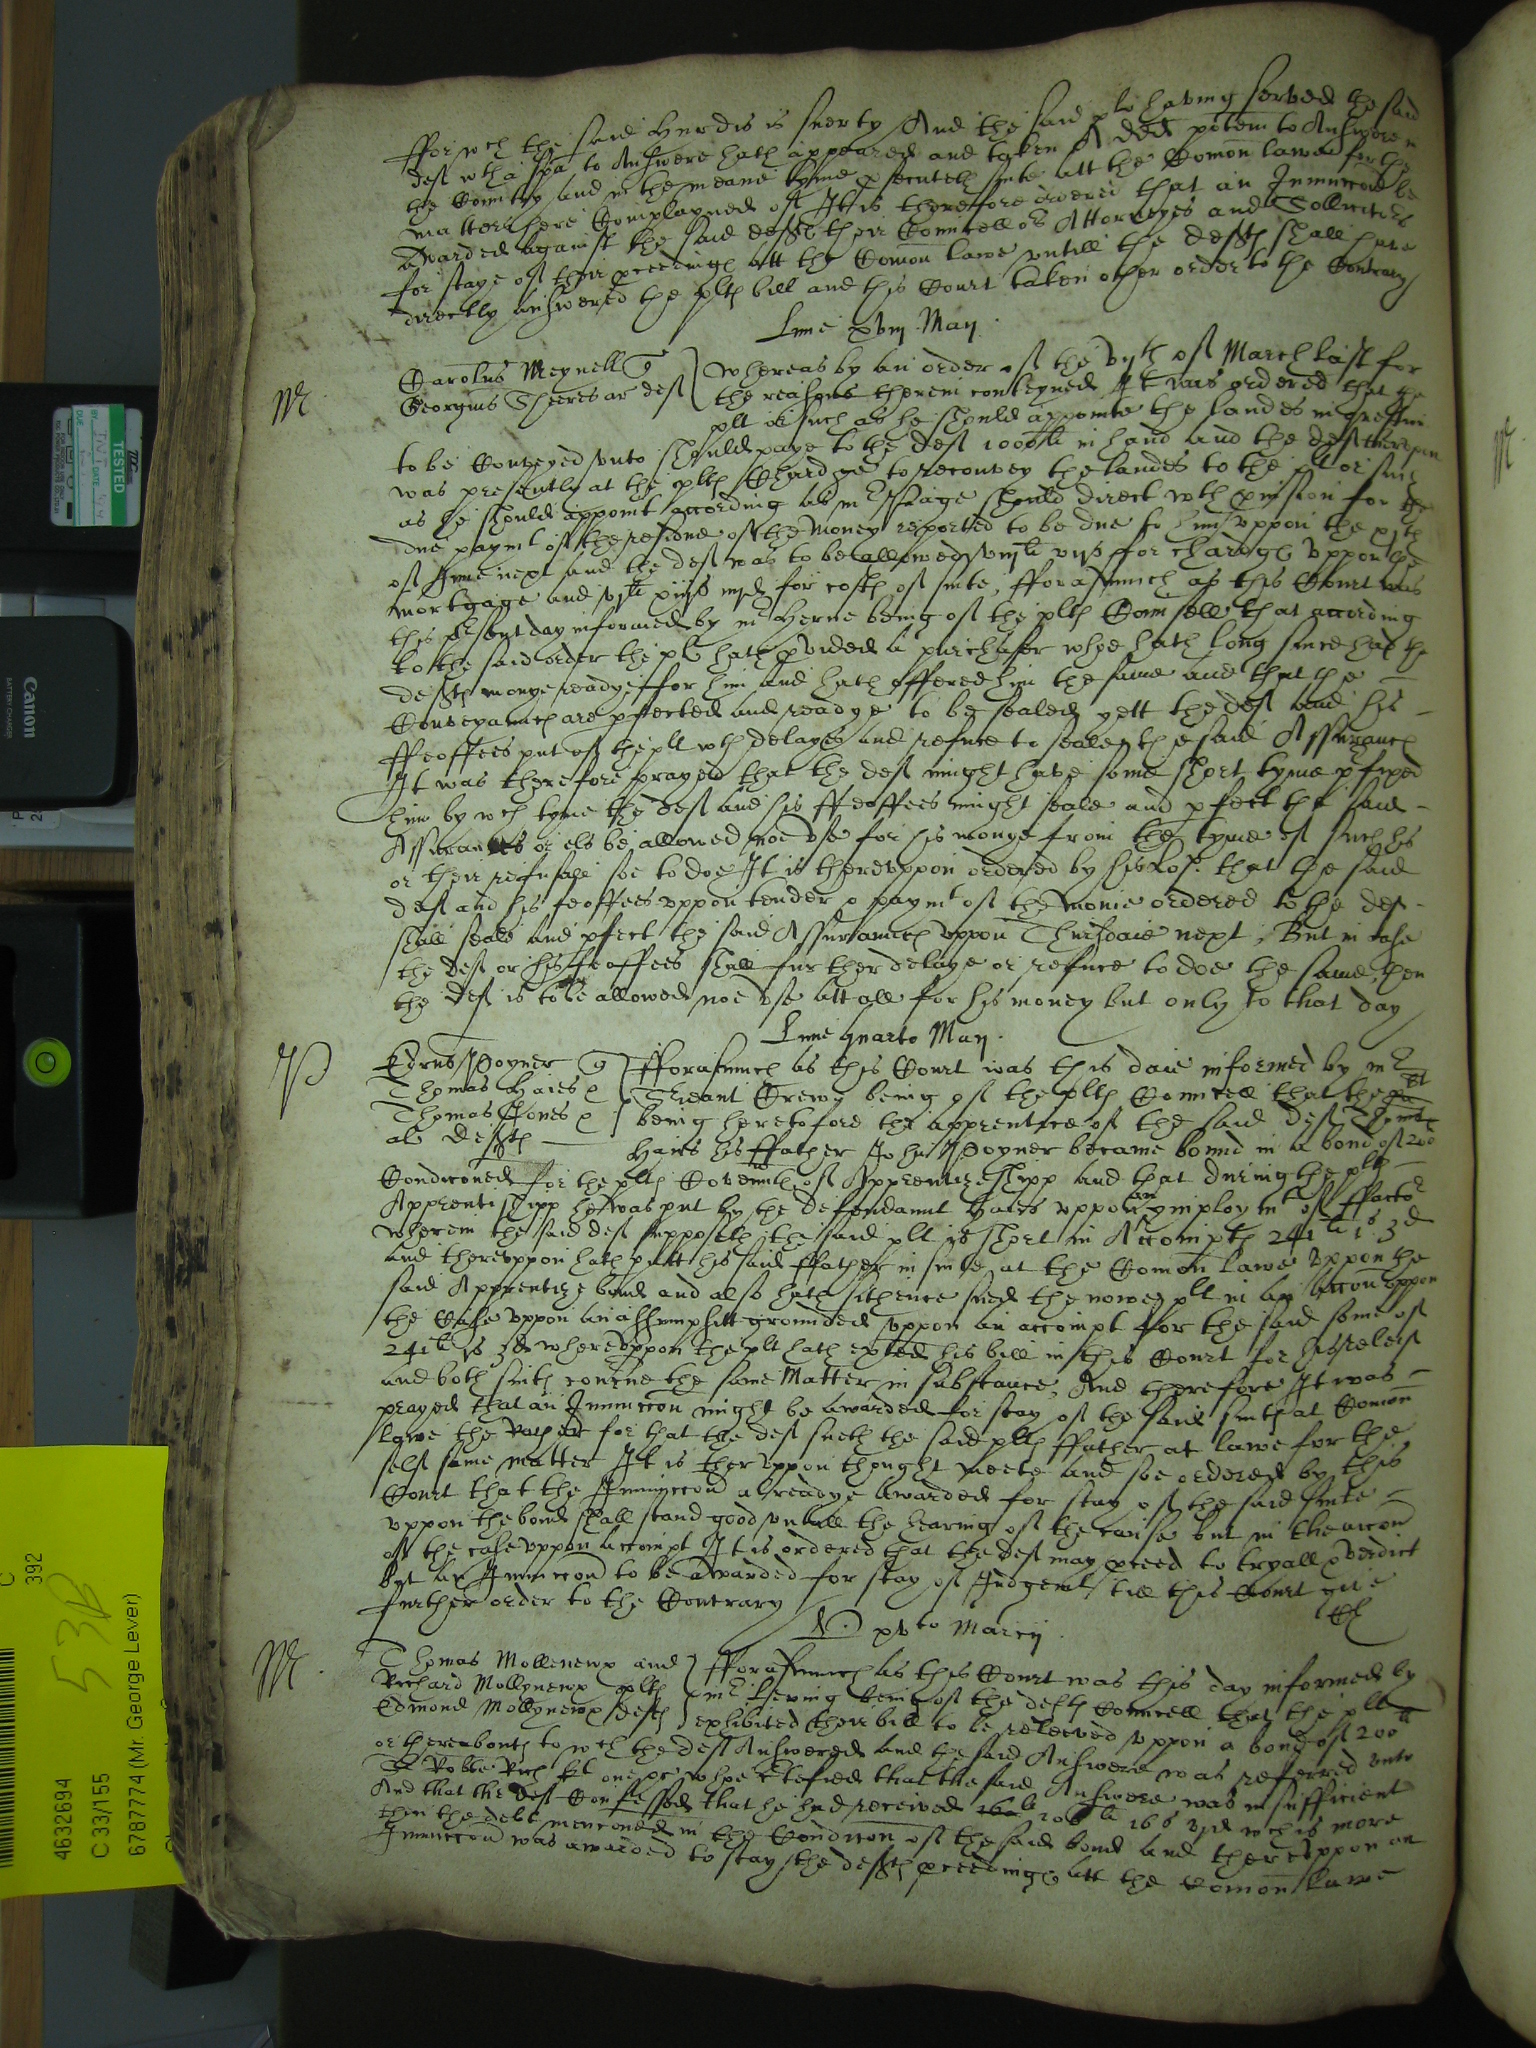 ffor wch the said Hurdis is suerty And the said plt having served the said
deft wth a spa to Answere hath appeared and taken a ded potem to Answere in
the Country and in the meane tyme psecuteth suite att the Comon lawe for the
matters here Complayned of It is therefore ordered that an Iniunccon be
Awarded against the said defts their Councellors Attorneyes and Sollicitors
for staye of their pceedings att the Comon lawe untill the defts shall have
directly Answered the plts bill and this Court taken other order to the Contrary
Lune xviij May
M
Carolus Meynell q
Georgius ar deft
whereas by an order of the vijth of March last for
the reasons therein conteyned It was ordered that the
plt or such as he should appointe the landes in question
to be Conveyed unto should paye to the deft 1000li in hand and the deft thereupon
was presently at the plts Chardge to reconvey the landes to the plt or such
as he should appoint according as mr Page should direct wth pvision for the
due paymt of the residue of the money reported to be due to him uppon the xjth
of June next and the deft was to be allowed for chardges uppon the
mortgage and vjli xiijs iiijd for costs of suite, fforasmuch as this Court was
this psent day informed by mr Herne being of the plts Counsell that according
to the said order the plt hath pvided a purchaser whoe hath long since had the
defts monye readye for him and hath offered him the same and that the
Conveyances are pfected and readye to be sealed yett the deft and his
ffeoffees put of the plt wth delayes and refuse to seale the said Assurances
It was therefore prayed that the deft might have some short tyme pfixed
him by wch tyme the deft and his ffeoffees might seale and pfect the said
Assurances or els be allowed noe use for his monye from the tyme of such his
or their refusall soe to doe It is thereuppon ordered by his Lop: that the said
deft and his feoffees uppon tender or paymt of the monie ordered to the deft
shall seale and pfect the said Assurances uppon Thursdaie next, But in case
the deft or his feoffees shall further delaye or refuse to doe the same, then
the deft is to be allowed noe use att all for his money but only to that day
Lune quarto May
Edrus Poyner q
Thomas Haies
Thomas Jones
al defts
fforasmuch as this Court was this daie informed by mr
Serieant Crewe being of the plts Councell that the plt
being heretofore the apprentice of the said deft Thomas
Haies his ffather John Poyner became bound in a bond of 200li
Condiconed for the plts Covennts of Apprentiziship and that during the plts
Apprentiship he was put by the defendannt Haies uppon an ymploymt of ffactor
wherein the said deft supposeth the said plt is short in Accompts 241li 1s 3d
and thereuppon hath putt his said ffather in suite at the Comon lawe uppon the
said Apprentize bond and also hath sithence sued the nowe plt in an accon uppon
the Case uppon an assumpsitt grounded uppon an accompt for the said some of
241li js 3d whereuppon the plt hath exhted his bill in this Court for his releif
and both suits concerne the same Matter in substance, And therefore It was
prayed that an Iniunccon might be awarded for stay of the said suits at Comon
lawe the rather for that the deft sueth the said plts ffather at lawe for the
self same matter It is theruppon thought meete and soe ordered by this
Court that the Iniunccon alreadye awarded for stay of the said suite
uppon the bond shall stand good untill the hearing of the cause but in the accon
of the case uppon accompt It is ordered that the deft may pceed to tryall & verdict
but an Iniunccon to be awarded for stay of Judgemt till this Court give
further order to the Contrary
xvto Marcij
M
Thomas Mollenewx and
Richard Mollynewx plts
Edmond Mollynewx deft
fforasmuch as this Court was this day informed by
mr being of the defts Councell that the plts
exhibited their bill to be releeved uppon a bond of 200li
or thereabouts to wch the deft Answered and the said Answere was referred unto
Sr Robte Rich kt one &c whoe Certefied that the said Answere was insufficient
And that the deft Confessed that he had received 106li 16s wch is more
then the debt menconed in the Condicon of the said bond and thereuppon an
Iniunccon was awarded to stay the defts pceedings att the comon lawe
TESTED
DATE
DUE
BY
Canon
BATTERY CHARGER
C
392
53B
4632694
C 33/155
67877774 (Mr. George Lever)